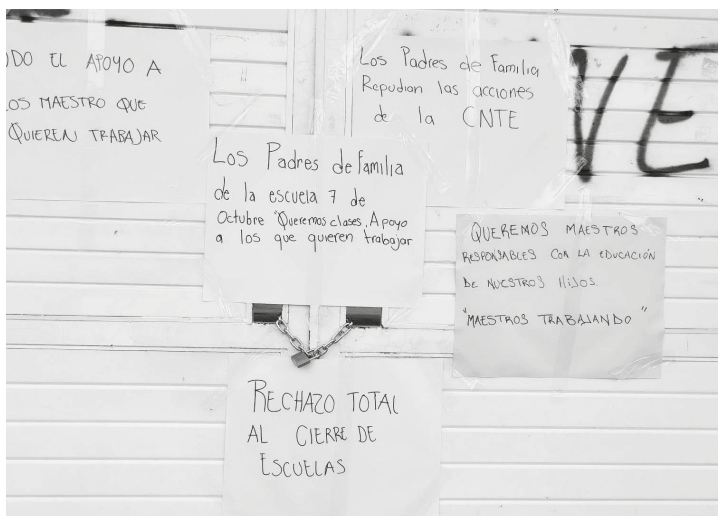 ODO EL APOYO A
LOS MAESTRO QUE
QUIEREN TRABAJAR
Los Padres de Familia
Repudian las acciones
de la CNTE
VE
Los Padres de familia
de la escuela 7 de
Octubre "Queremos clases, Apoyo
a los que quieren trabajar
QUEREMOS MAESTROS
RESPONSABLES CON LA EDUCACIÓN
DE NUESTROS HIJOS.
"MAESTROS TRABAJANDO"
RECHAZO TOTAL
AL CIERRE DE
ESCUELAS